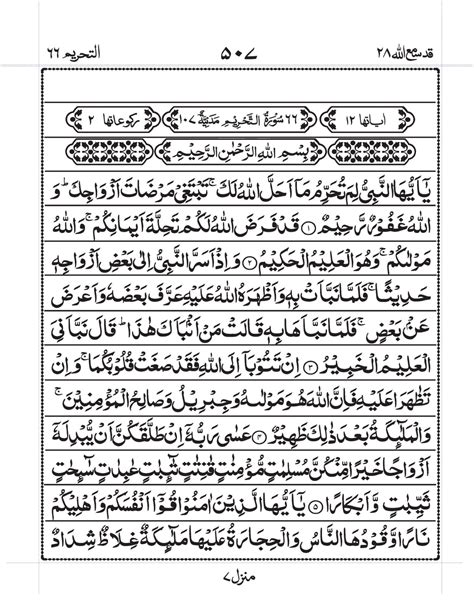 قد سمع الله ٢٨
٥٠٧
التحريم ٦٦
اٰیاتها ١٢
٦٦ سُوْرَةُ التَّحْرِيْمِ مَدَنِيَّةٌ ١٠٧
رکوعاتها ٢
بِسْمِ اللهِ الرَّحْمٰنِ الرَّحِيْمِ
يٰۤاَيُّهَا النَّبِيُّ لِمَ تُحَرِّمُ مَاۤ اَحَلَّ اللهُ لَكَ ۚ تَبْتَغِيْ مَرْضَاتَ اَزْوَاجِكَ ؕ وَ
اللهُ غَفُوْرٌ رَّحِيْمٌ ﴿١﴾ قَدْ فَرَضَ اللهُ لَكُمْ تَحِلَّةَ اَيْمَانِكُمْ ۚ وَاللهُ
مَوْلٰىكُمْ ۚ وَهُوَ الْعَلِيْمُ الْحَكِيْمُ ﴿٢﴾ وَاِذْ اَسَرَّ النَّبِيُّ اِلٰى بَعْضِ اَزْوَاجِهٖ
حَدِيْثًا ۚ فَلَمَّا نَبَّاَتْ بِهٖ وَاَظْهَرَهُ اللهُ عَلَيْهِ عَرَّفَ بَعْضَهٗ وَاَعْرَضَ
عَنْۢ بَعْضٍ ۚ فَلَمَّا نَبَّاَهَا بِهٖ قَالَتْ مَنْ اَنْۢبَاَكَ هٰذَا ؕ قَالَ نَبَّاَنِيَ
الْعَلِيْمُ الْخَبِيْرُ ﴿٣﴾ اِنْ تَتُوْبَاۤ اِلَى اللهِ فَقَدْ صَغَتْ قُلُوْبُكُمَا ۚ وَاِنْ
تَظٰهَرَا عَلَيْهِ فَاِنَّ اللهَ هُوَ مَوْلٰىهُ وَجِبْرِيْلُ وَصَالِحُ الْمُؤْمِنِيْنَ ۚ
وَالْمَلٰٓئِكَةُ بَعْدَ ذٰلِكَ ظَهِيْرٌ ﴿٤﴾ عَسٰى رَبُّهٗۤ اِنْ طَلَّقَكُنَّ اَنْ يُّبْدِلَهٗۤ
اَزْوَاجًا خَيْرًا مِّنْكُنَّ مُسْلِمٰتٍ مُّؤْمِنٰتٍ قٰنِتٰتٍ تٰٓئِبٰتٍ عٰبِدٰتٍ سٰٓئِحٰتٍ
ثَيِّبٰتٍ وَّاَبْكَارًا ﴿٥﴾ يٰۤاَيُّهَا الَّذِيْنَ اٰمَنُوْا قُوْۤا اَنْفُسَكُمْ وَاَهْلِيْكُمْ
نَارًا وَّقُوْدُهَا النَّاسُ وَالْحِجَارَةُ عَلَيْهَا مَلٰٓئِكَةٌ غِلَاظٌ شِدَادٌ
منزل ٧